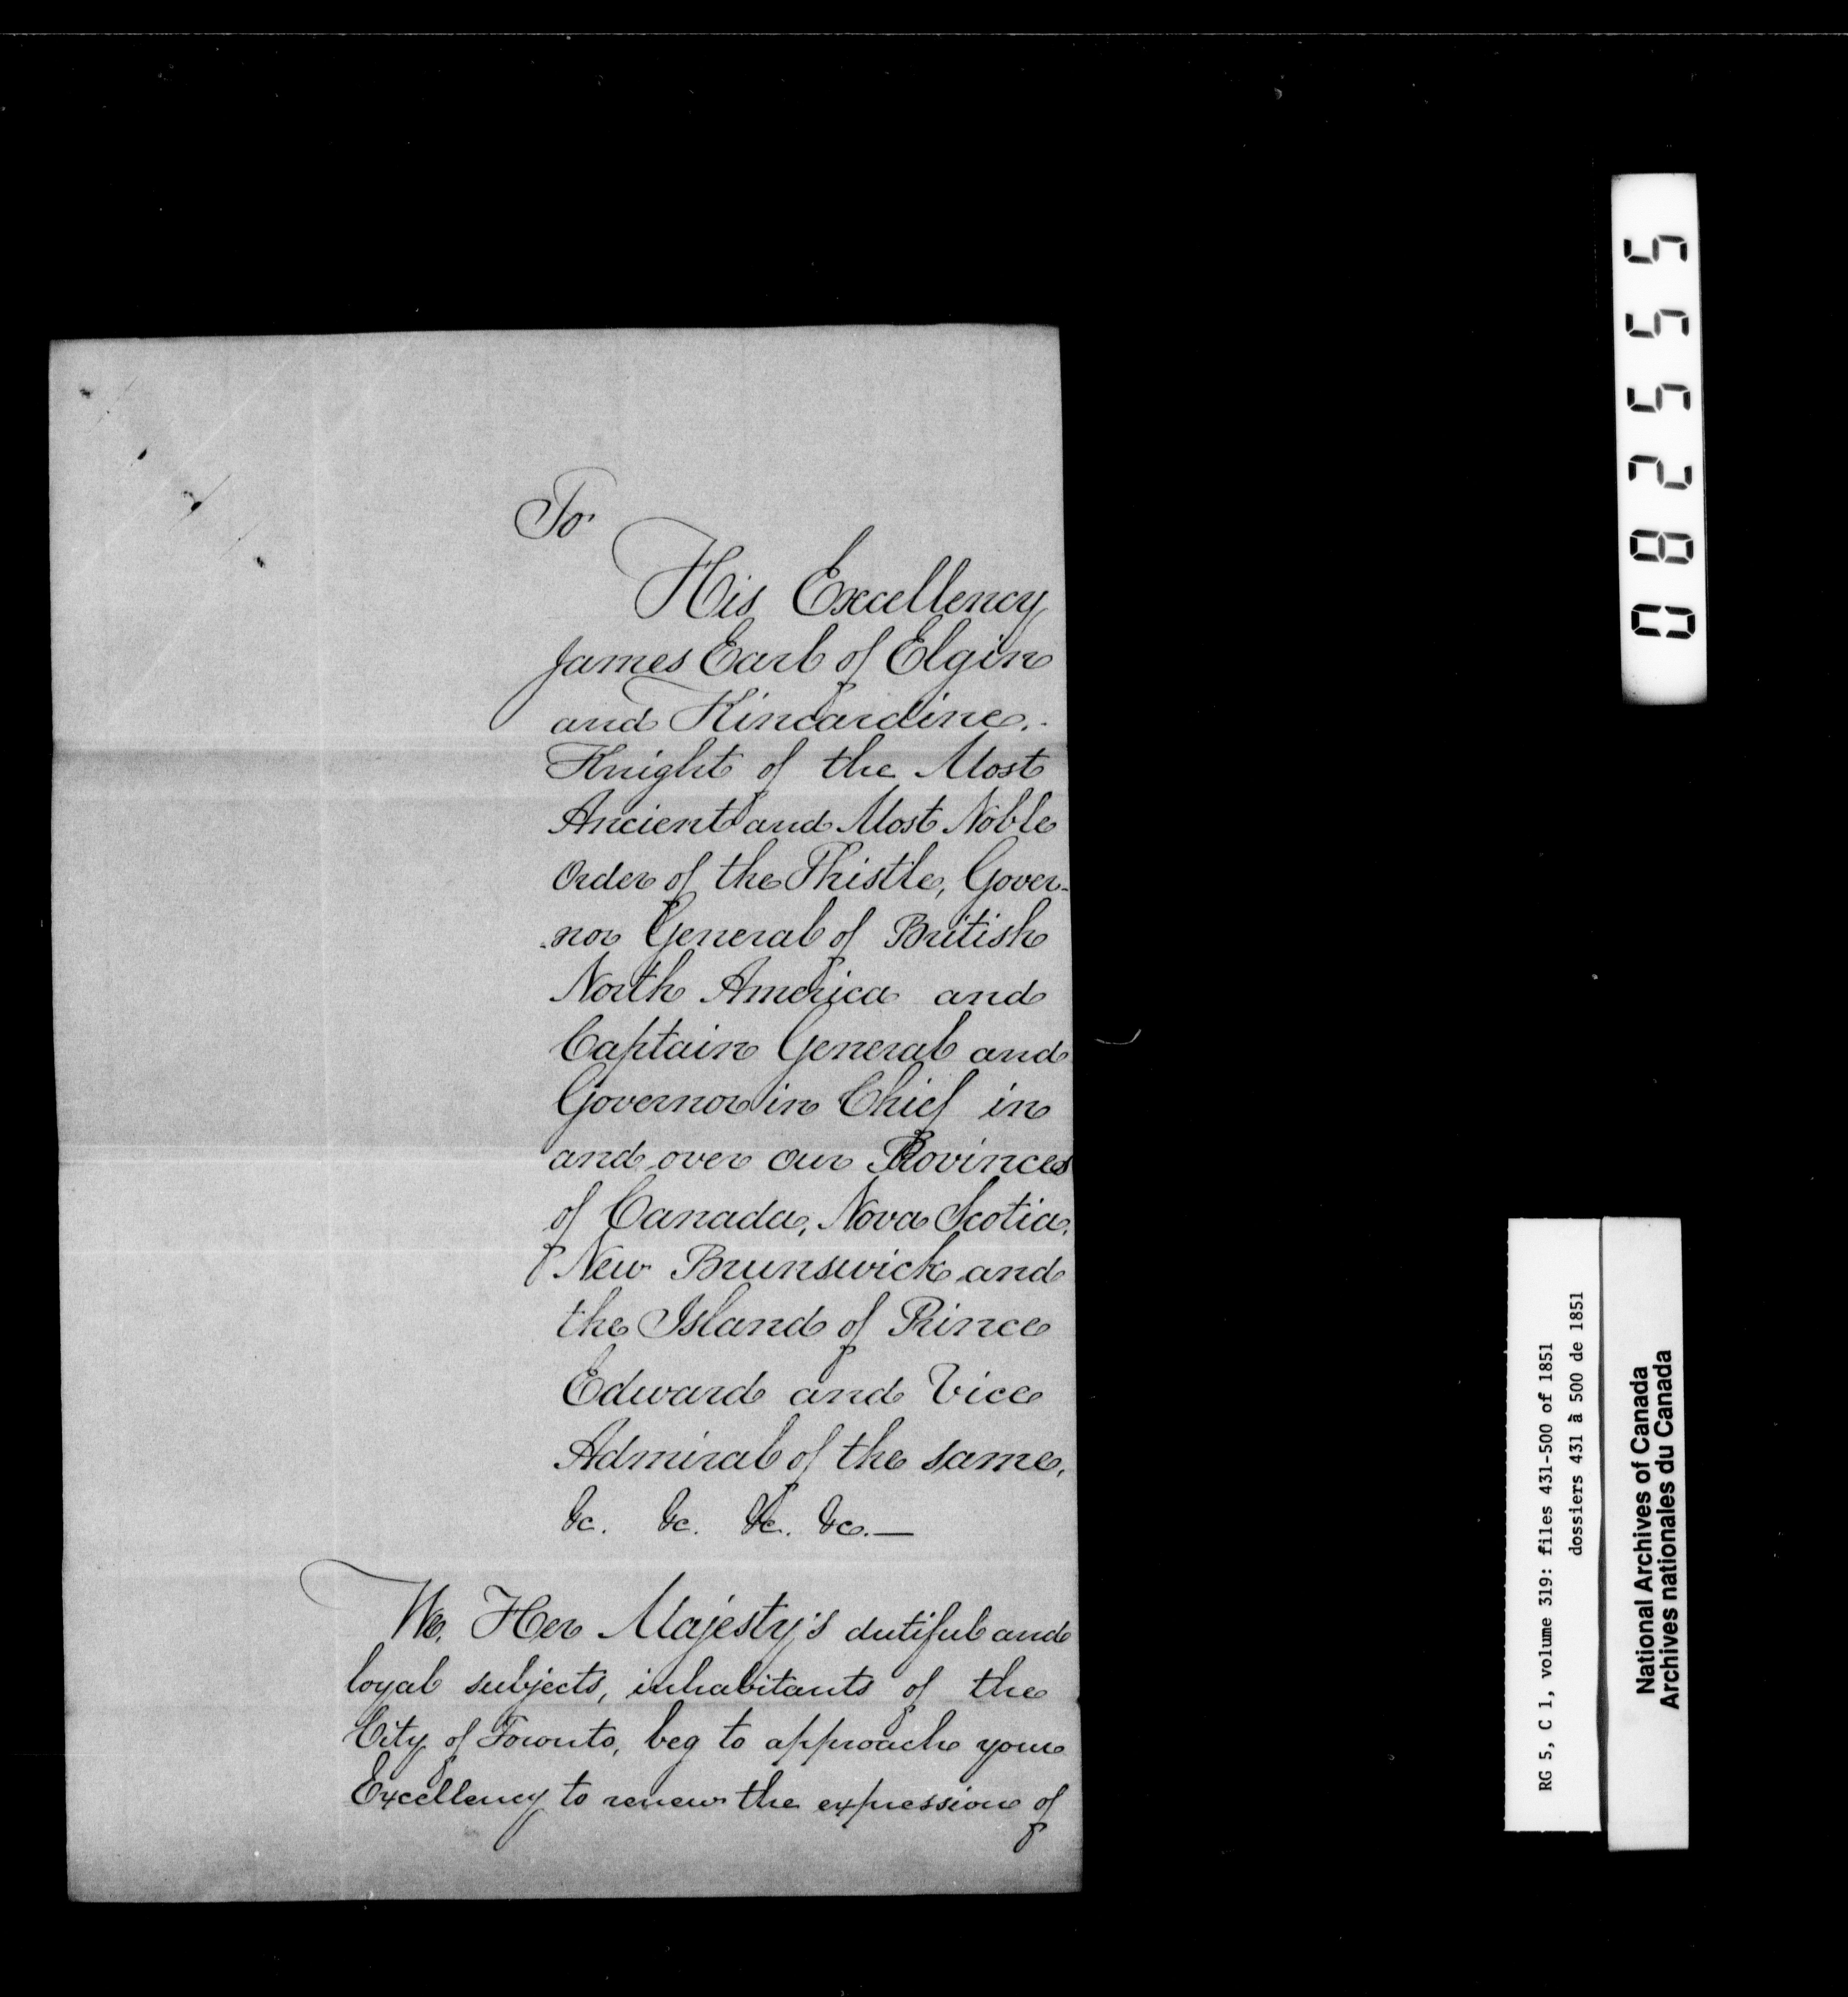 To
His Excellency
James Earl of Elgin
and Kincardine.
Knight of the Most
Ancient and Most Noble
Order of the Thistle, Gover-
-nor General of British
North America and
Captain General and
Governor in Chief in
and over our Provinces
of Canada, Nova Scotia,
New Brunswick and
the Island of Prince
Edward and Vice
Admiral of the same,
&c. &c. &c. &c. —
We, Her Majesty's dutiful and
loyal subjects, inhabitants of the
City of Toronto, beg to approach your
Excellency to renew the expression of
082555
RG 5, C 1, volume 319: files 431-500 of 1851
dossiers 431 à 500 de 1851
National Archives of Canada
Archives nationales du Canada